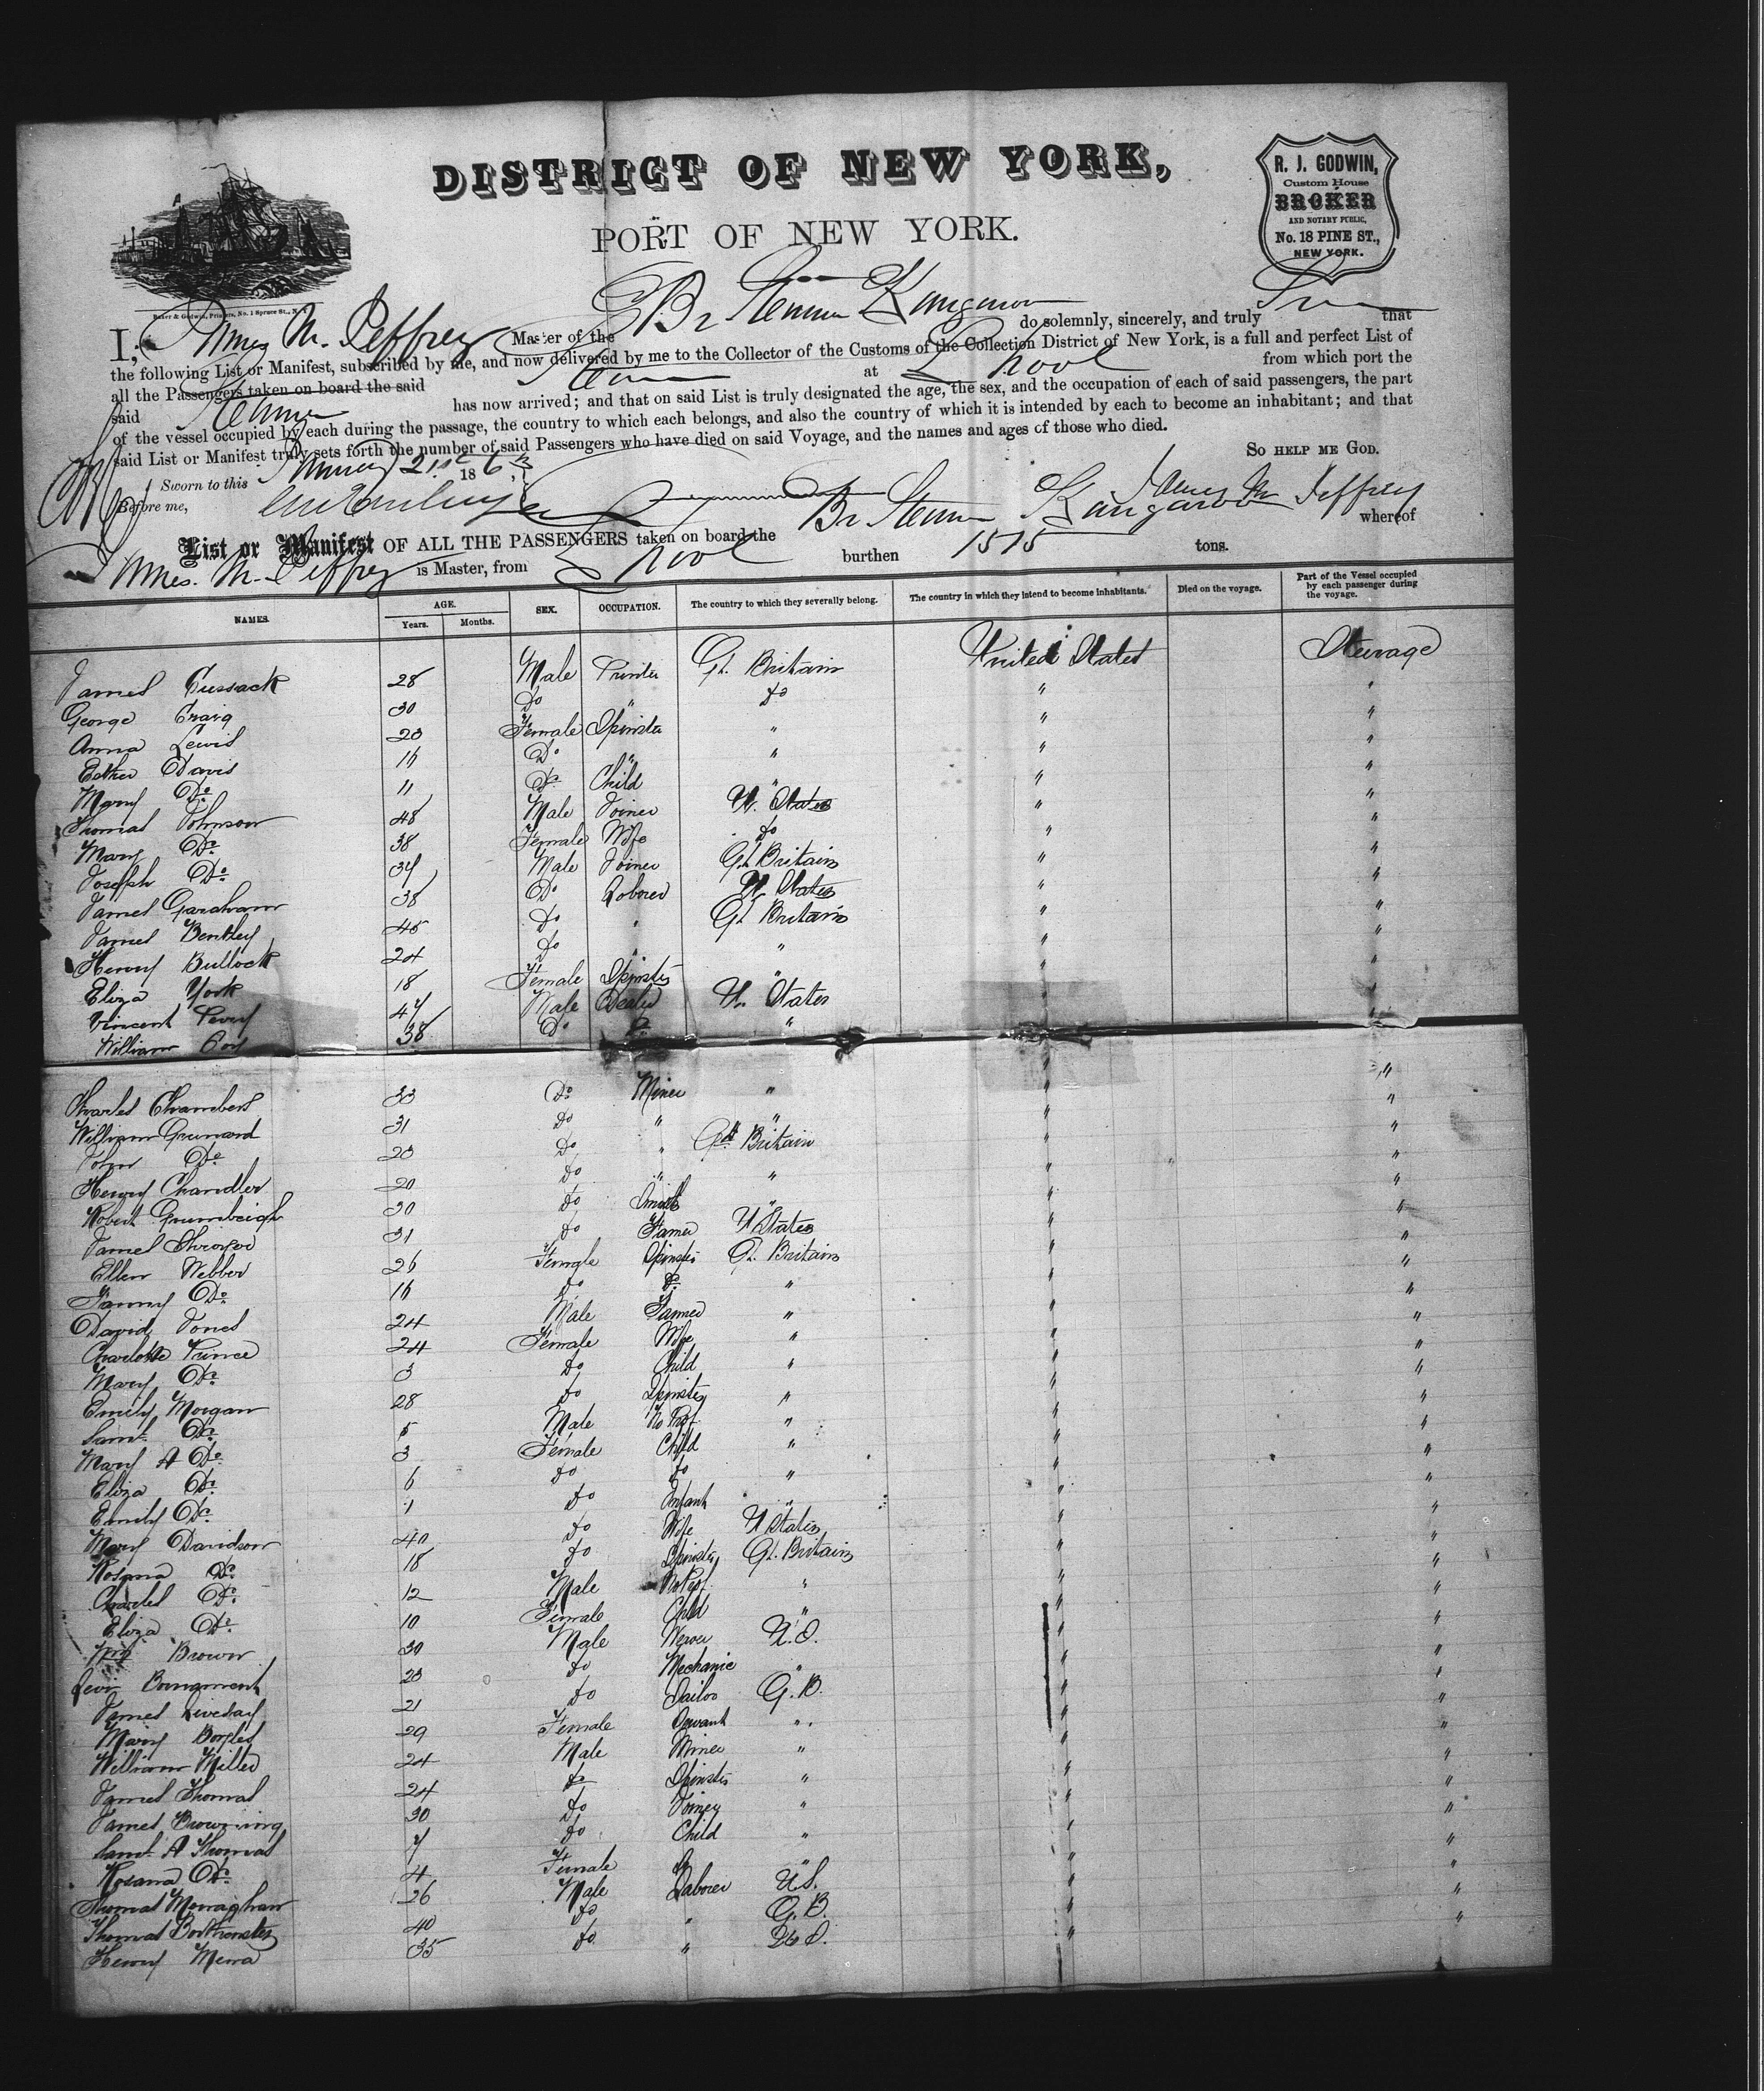 DISTRICT OF NEW YORK,
PORT OF NEW YORK.
R. J. GODWIN,
Custom House
BROKER
AND NOTARY PUBLIC,
No. 18 PINE ST.,
NEW YORK.
Baker & Godwin, Printers, No. 1 Spruce St., N. Y.
I, James M. Jeffrey Master of the Br Steamer Kangaroo do solemnly, sincerely, and truly that
the following List or Manifest, subscribed by me, and now delivered by me to the Collector of the Customs of the Collection District of New York, is a full and perfect List of
all the Passengers taken on board the said at L'pool from which port the
said Steamer has now arrived; and that on said List is truly designated the age, the sex, and the occupation of each of said passengers, the part
of the vessel occupied by each during the passage, the country to which each belongs, and also the country of which it is intended by each to become an inhabitant; and that
said List or Manifest truly sets forth the number of said Passengers who have died on said Voyage, and the names and ages of those who died.
SO HELP ME GOD.
Sworn to this 21st 186
Before me,
James M Jeffrey
List or Manifest OF ALL THE PASSENGERS taken on board the Br Steamer Kangaroo whereof
James M. Jeffrey is Master, from L'pool burthen 1515 tons.
NAMES. AGE. Years. Months. SEX. OCCUPATION. The country to which they severally belong. The country in which they intend to become inhabitants. Died on the voyage. Part of the Vessel occupied by each passenger during the voyage.
James Cussack 28 Male Printer Gt. Britain United States Steerage
George Craig 30 Do " Do " "
Anna Lewis 20 Female Spinster " " "
Esther Davis 16 Do " " " "
Mary Do 11 Do Child " " "
Thomas Johnson 48 Male Joiner U. States " "
Mary Do 38 Female Wife Do " "
Joseph Do 34 Male Joiner Gt Britain " "
James Garaham 38 Do Laborer U. States " "
James Bentley 45 Do " Gt Britain " "
Henry Bullock 24 Do " " " "
Eliza York 18 Female Spinster " " "
Vincent 47 Male Dealer U. States " "
William Cox 38 Do " " "
Charles Chambers 33 Do Miner " " "
William Grunard 31 Do " " " "
John Do 20 Do " Gt Britain " "
Henry Chandler 20 Do " " " "
Robert 30 Do Smith " " "
James 31 Do Farmer U States " "
Ellen Webber 26 Female Spinster Gt. Britain " "
Fanny Do 16 Do Do " " "
David Jones 24 Male Farmer " " "
Charlotte Prince 24 Female Wife " " "
Mary Do 3 Do Child " " "
Emily Morgan 28 Do Spinster " " "
Saml. Do 5 Male No Prof. " " "
Mary A Do 3 Female Child " " "
Eliza Do 6 Do Do " " "
Emily Do 1 Do Infant " " "
Mary Davidson 40 Do Wife U States " "
Rosana Do 18 Do Spinster Gt. Britain " "
Charles Do 12 Male No Prof. " " "
Eliza Do 10 Female Child " " "
Wm Brown 30 Male Weaver U.S. " "
Levi 23 Do Mechanic " " "
James Livesay 21 Do Sailor G.B. " "
Mary 29 Female Servant " " "
William Miller 24 Male Miner " " "
James Thomas 24 Do Spinster " " "
James Browning 30 Do Joiner " " "
Saml. A Thomas 7 Do Child " " "
Rosana Do 4 Female Do " " "
Thomas Monaghan 26 Male Laborer U.S. " "
Thomas 40 Do " G.B. " "
Henry 35 Do " " "